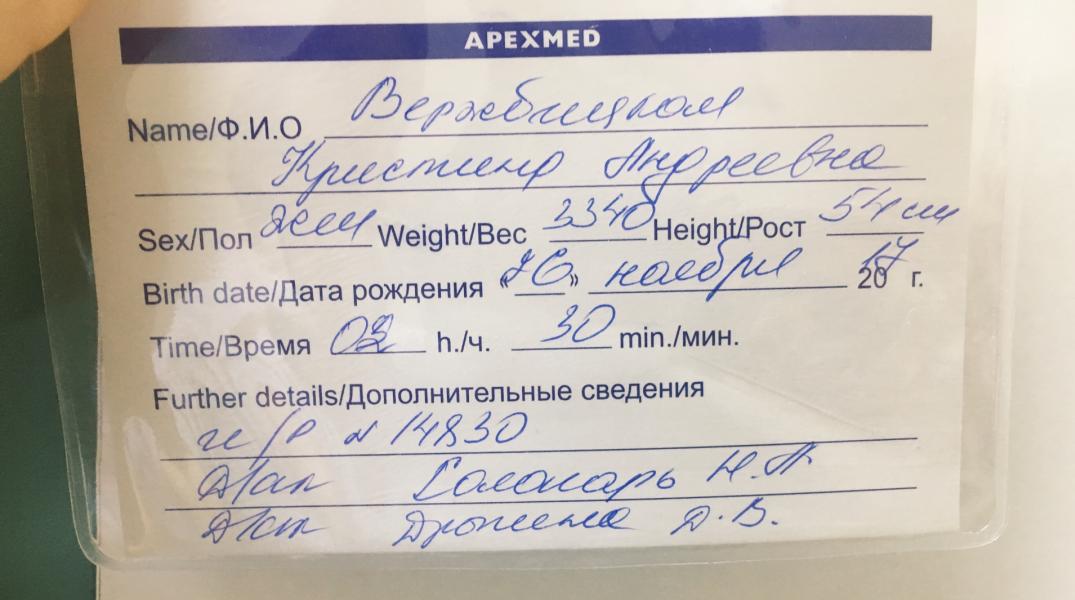 APEXMED
Name/Ф.И.О Вержбицкая
Кристина Андреевна
Sex/Пол жен Weight/Вес 3340 Height/Рост 54 см
Birth date/Дата рождения «16» ноября 2017 г.
Time/Время 02 h./ч. 30 min./мин.
Further details/Дополнительные сведения
и/р N 14830
Н.П
Д.В.